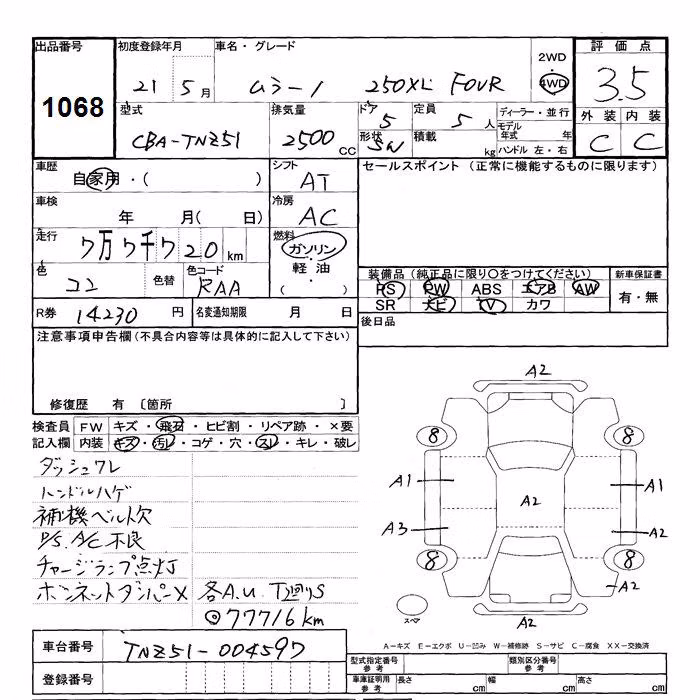 出品番号 初度登録年月 車名・グレード 2WD 評価点
1068 21 5月 ムラーノ 250XL FOUR 4WD 3.5
型式 排気量 ドア 定員 ディーラー・並行 外装 内装
CBA-TNZ51 2500CC 5 5人 モデル年式 年 C C
形状 SW 積載 kg ハンドル 左・右
車歴 シフト セールスポイント (正常に機能するものに限ります)
自家用・( ) AT
車検 冷房
年 月( 日) AC
走行 燃料
7万7千720km ガソリン・軽油・( )
色 色替 色コード 装備品 (純正品に限り○をつけてください) 新車保証書
コン RAA PS PW ABS エアB AW 有・無
R券 14230円 名変通知期限 月 日 SR ナビ TV カワ
注意事項申告欄 (不具合内容等は具体的に記入して下さい) 後日品
修復歴 有 〔箇所 〕
検査員 FW キズ・飛石・ヒビ割・リペア跡・×要
記入欄 内装 キズ・汚レ・コゲ・穴・スレ・キレ・破レ
ダッシュワレ
ハンドルハゲ
補機ベルト欠
P/S, A/C不良
チャージランプ点灯
ボンネットダンパー×
各A.U.T廻りS
◎77716km
A2
8 8
A1 A1
A2
A3 A2
8 8
A2
スペア A2
A-キズ E-エクボ U-凹み W-補修跡 S-サビ C-腐食 XX-交換済
車台番号 TNZ51-004597
登録番号
型式指定番号 参考 類別区分番号 参考
車庫証明用 参考 長さ cm 幅 cm 高さ cm